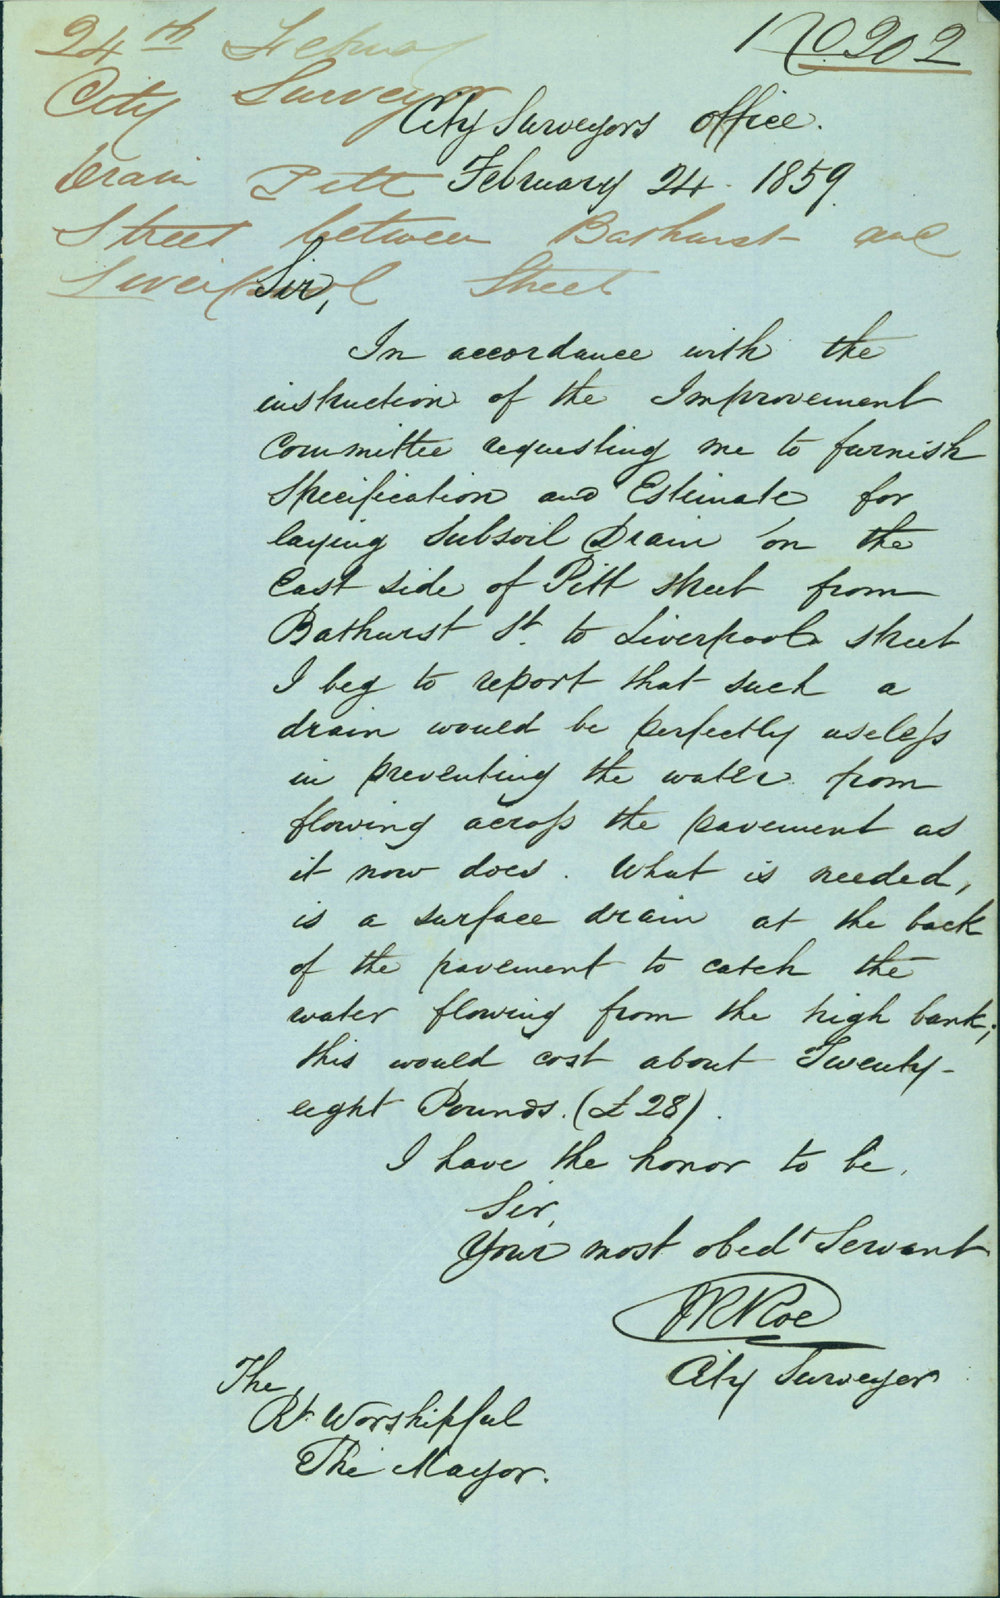 No 202
24th February
City Surveyor
Drain Pitt
Street between Bathurst and
Liverpool Street
City Surveyors office.
February 24. 1859.
Sir,
In accordance with the
instruction of the Improvement
Committee requesting me to furnish
Specification and Estimate for
laying Subsoil Drain on the
East side of Pitt street from
Bathurst St. to Liverpool street
I beg to report that such a
drain would be perfectly useless
in preventing the water from
flowing across the pavement as
it now does. What is needed,
is a surface drain at the back
of the pavement to catch the
water flowing from the high bank;
this would cost about Twenty-
eight Pounds. (£28).
I have the honor to be,
Sir,
Your most obedt Servant
City Surveyor
The
Rt. Worshipful
The Mayor.